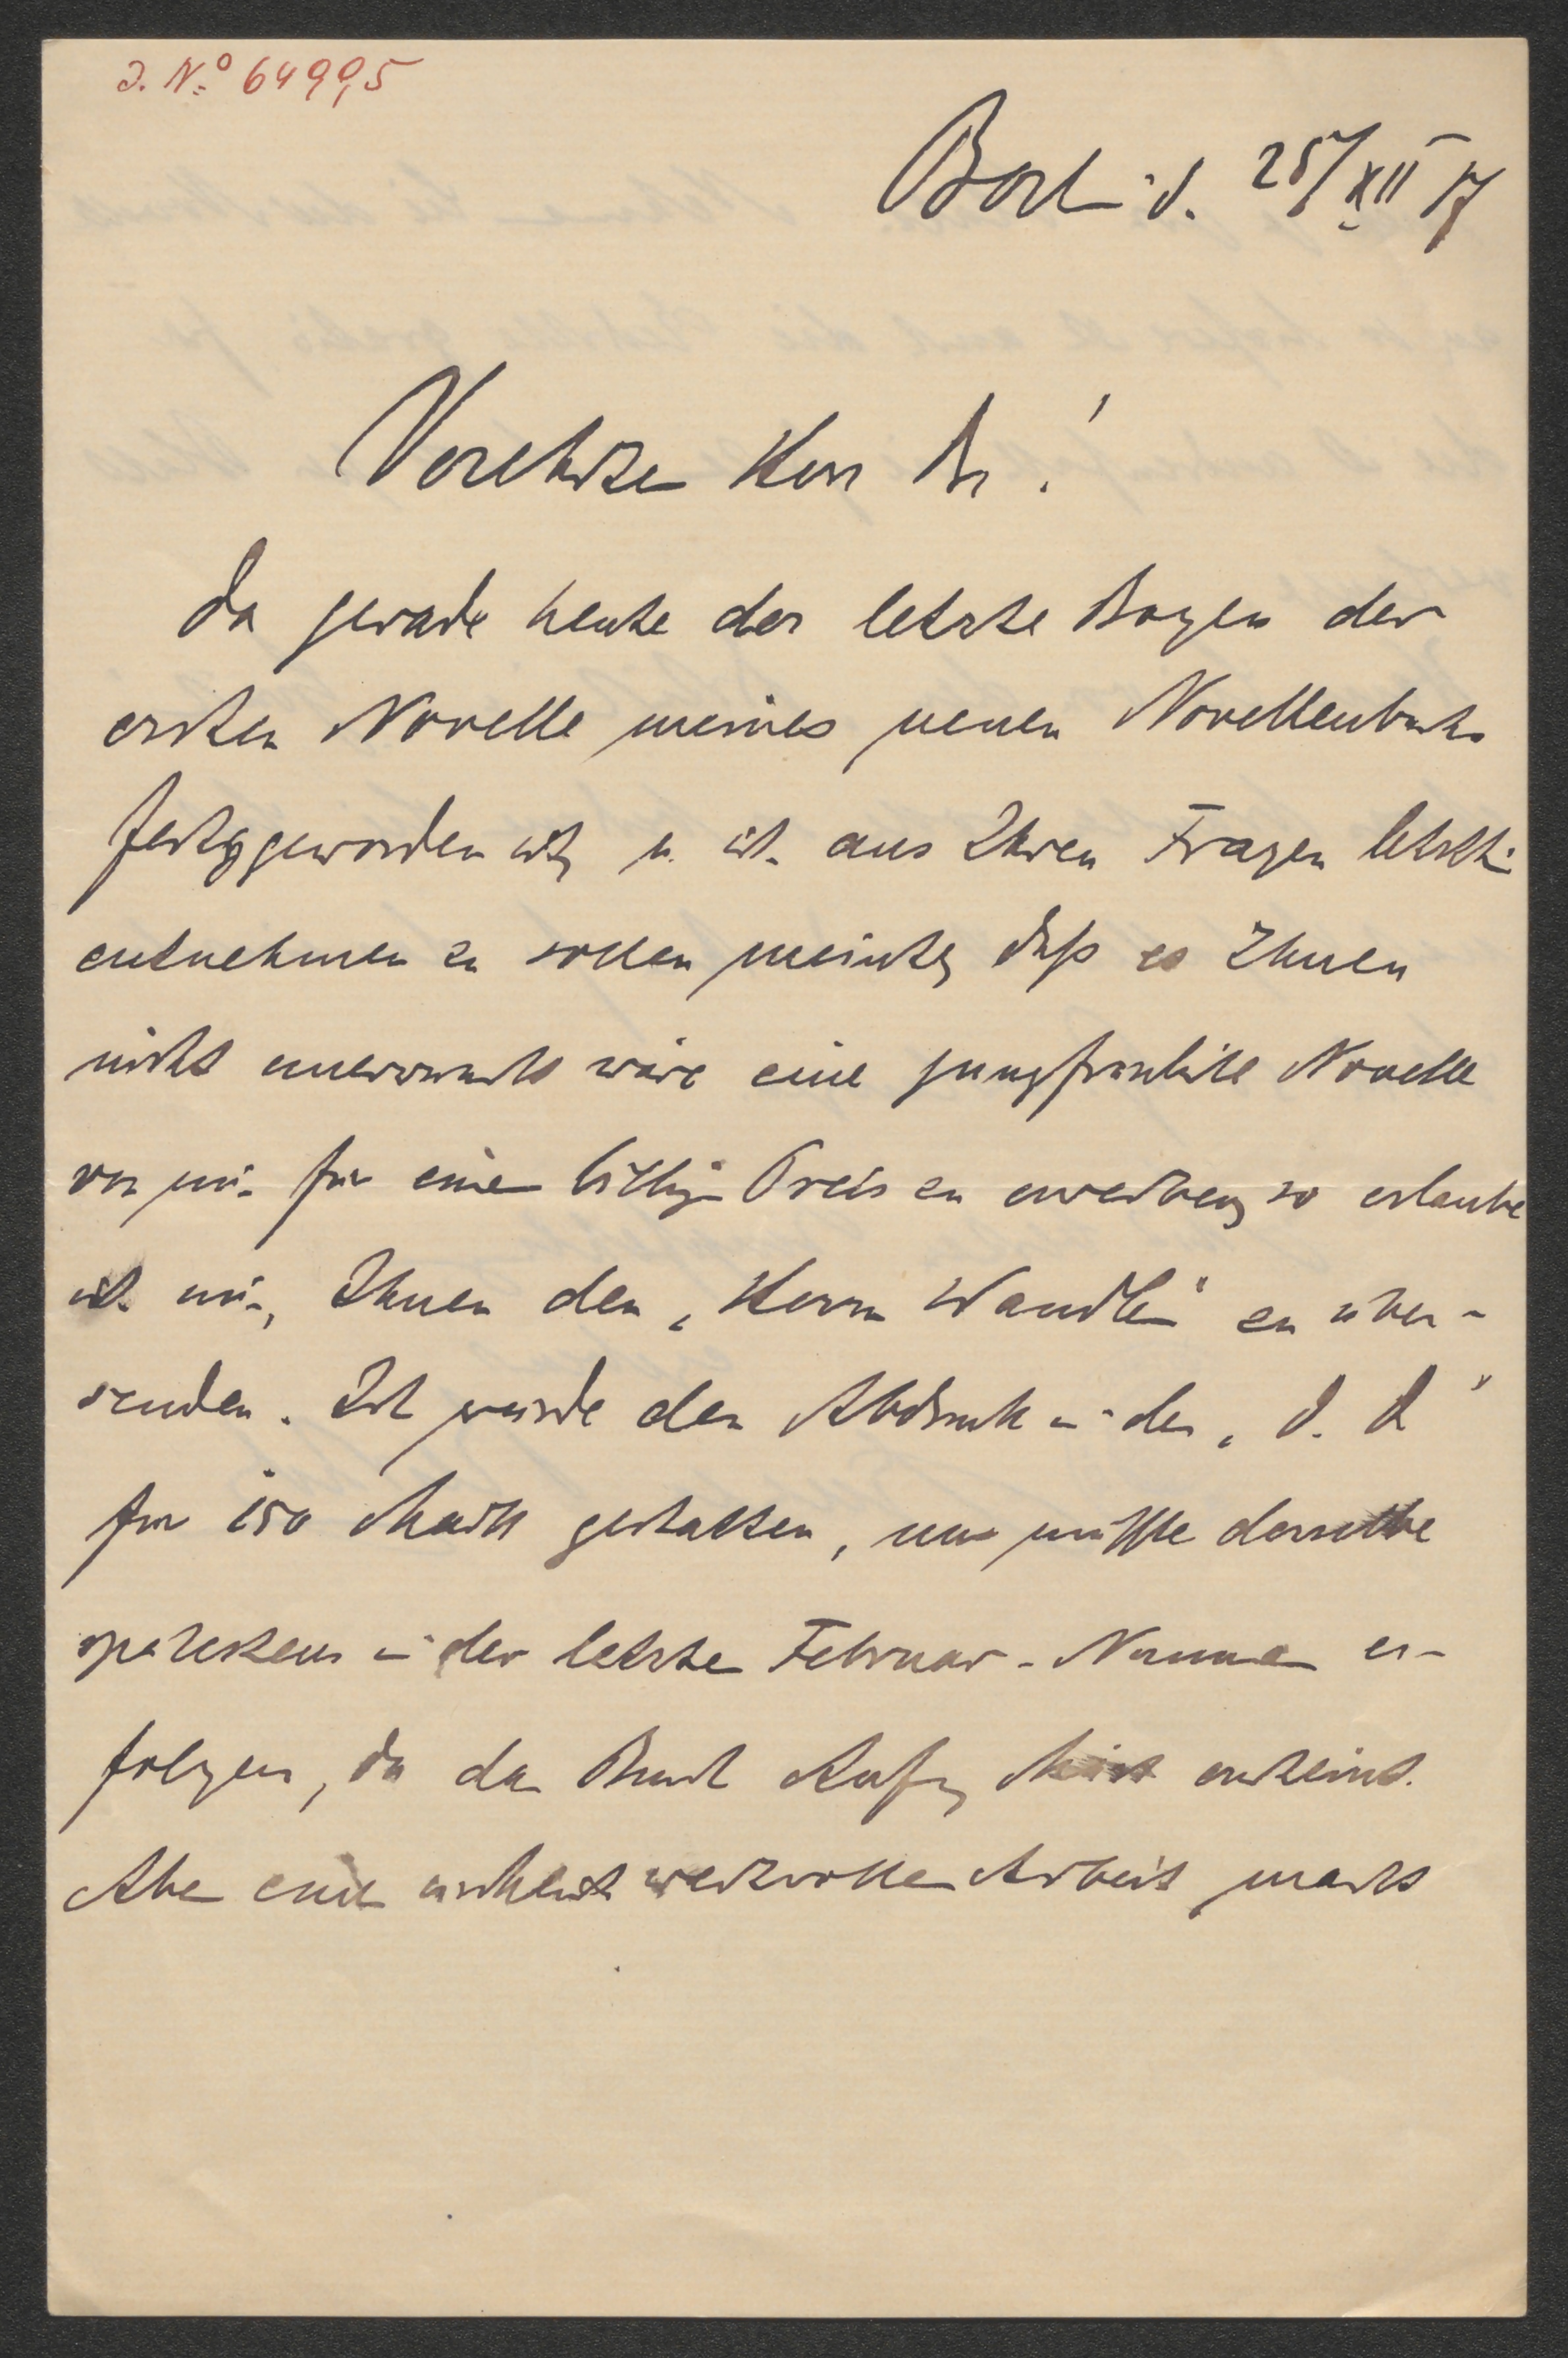 J. N.º 64995
Berlin d. 25/XII 17
Verehrter Herr Dr!
Da gerade heute der letzte Bogen der
ersten Novelle meines neuen Novellenbuchs
fertiggeworden ist, u. ich aus Ihren Fragen letzthin
entnehmen zu sollen meinte, daß es Ihnen
nicht unerwünscht wäre eine jungfräuliche Novelle
von mir für einen billigen Preis zu erwerben, so erlaube
ich mir, Ihnen den „Herrn Wandlein" zu über-
senden. Ich würde den Abdruck in der „D. D"
für 150 Mark gestatten, nur müßte derselbe
spätestens in der letzten Februar-Nummer er-
folgen, da das Buch Anfang März erscheint.
Aber eine wertvolle Arbeit macht